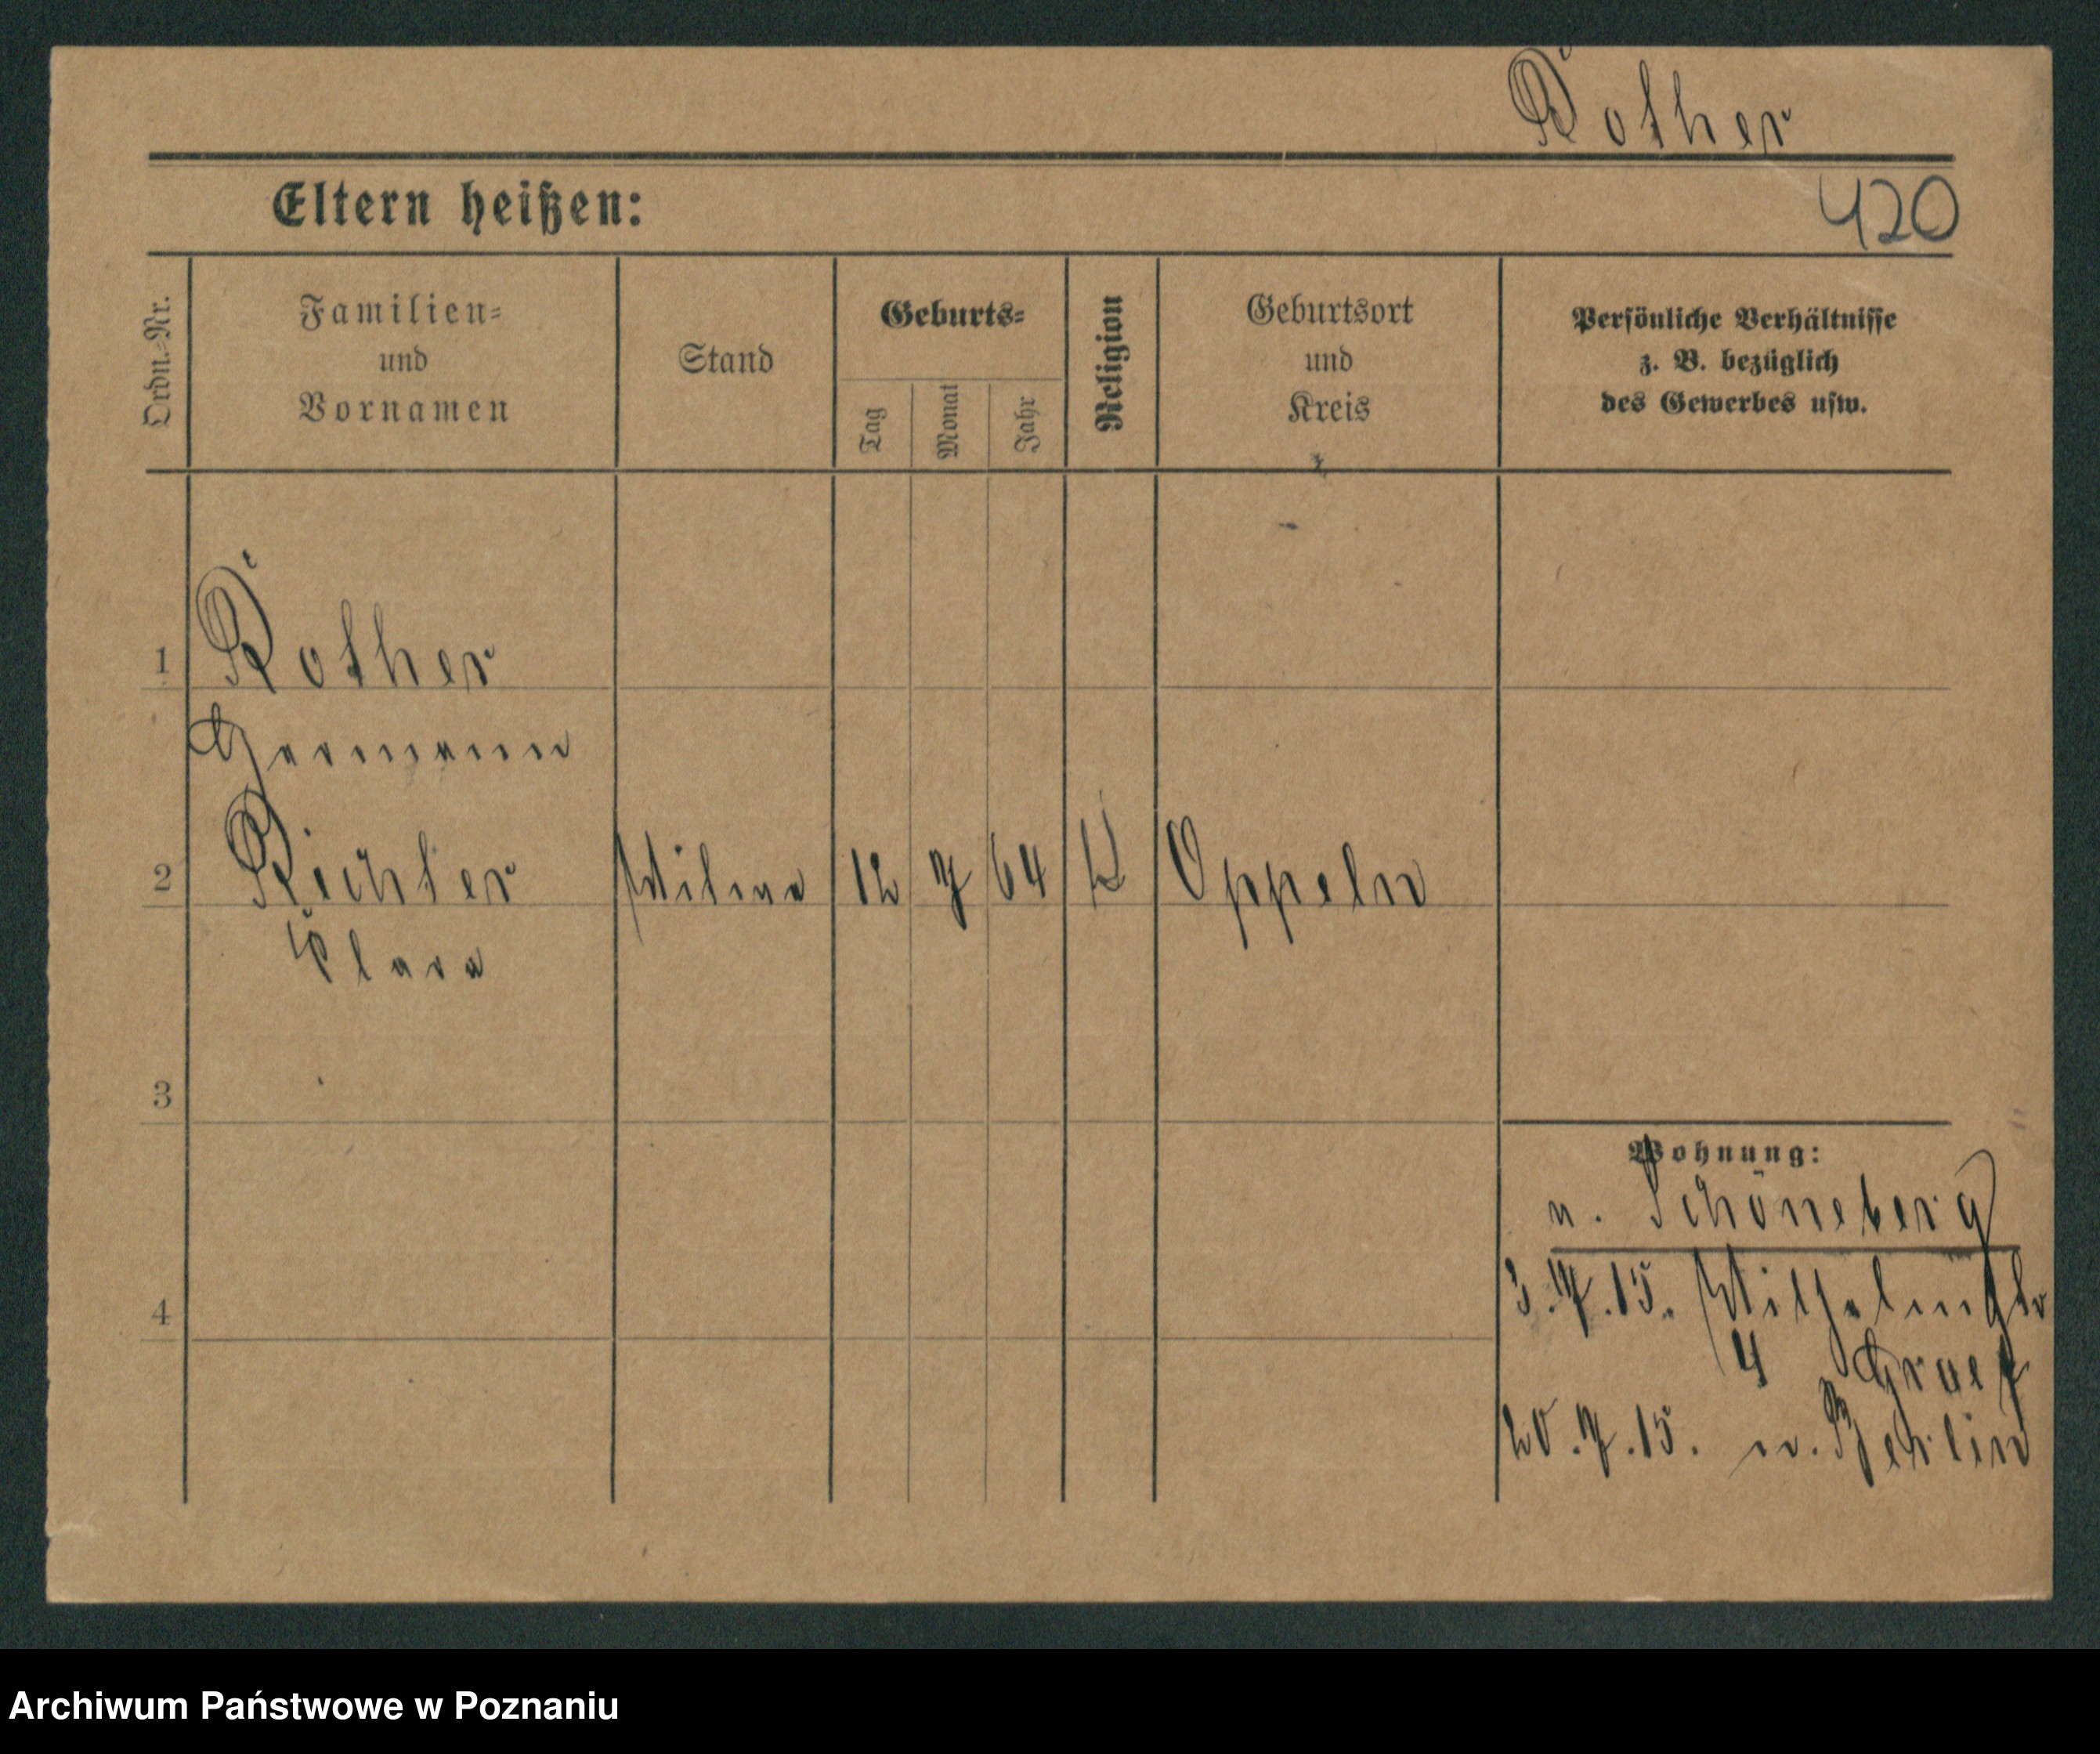 Rother
Eltern heißen:
420
Ordn.-Nr.
Familien-
und
Vornamen
Stand
Geburts-
Tag
Monat
Jahr
Religion
Geburtsort
und
Kreis
Persönliche Verhältnisse
z. B. bezüglich
des Gewerbes usw.
1 Rother
Hermann
2 Richter Witwe 12 7 64 K Oppeln
Clara
3
4
Wohnung:
v. Schöneberg
3.7.15. Wilhelmstr
4
20.7.15. n. Berlin
Archiwum Państwowe w Poznaniu